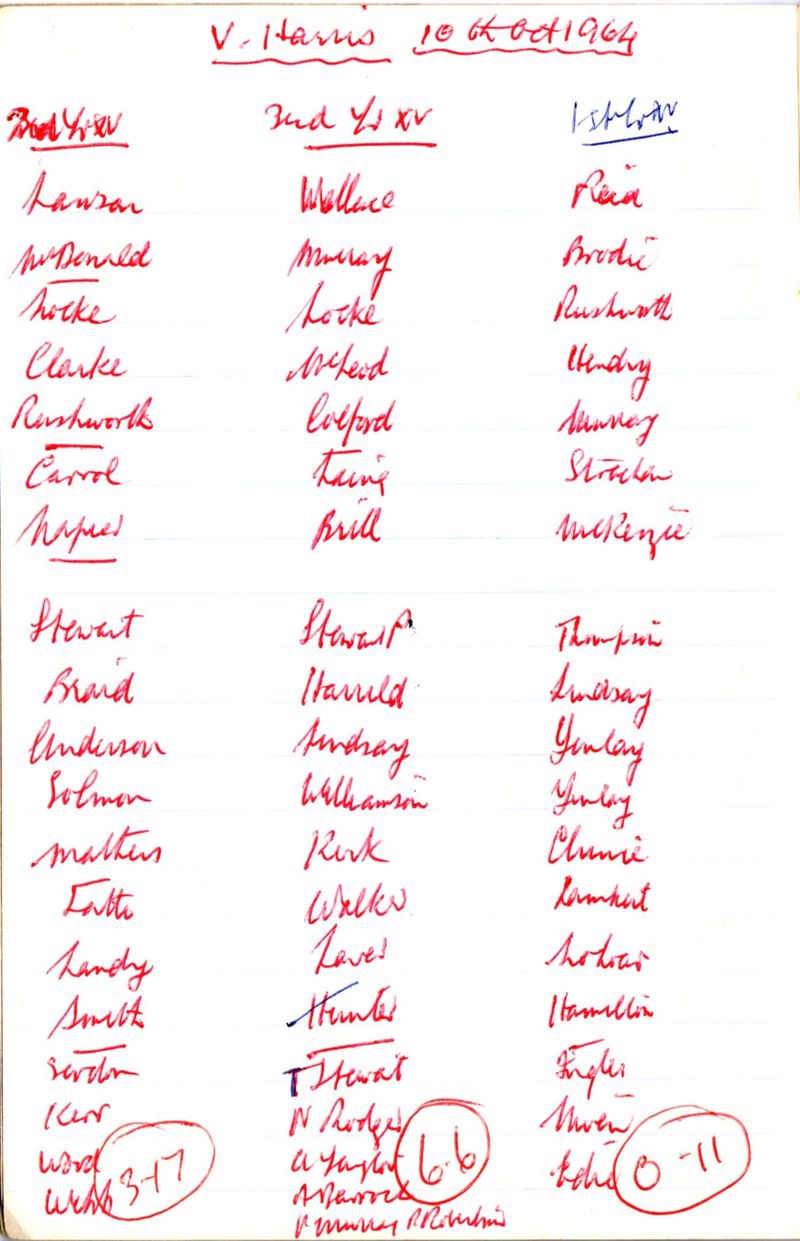 V. Harris 10th Oct 1964
3rd Yr XV
Lawson
McDonald
Locke
Clarke
Rushworth
Carrol
Napier
Stewart
Braid
Anderson
Solmon
Mathers
Latto
Landy
Smith
Kerr
Ward
Webb
3-17
2nd Yr XV
Wallace
Murray
Locke
McLeod
Colford
Laing
Brill
Stewart P
Harrild
Lindsay
Williamson
Kirk
Walker
Hunter
T Stewart
N Rodger
A Taylor
P Murray R Robertson
6-6
1st Yr XV
Reid
Brodie
Rushworth
Hendry
Murray
Strachan
McKenzie
Thompson
Lindsay
Clunie
Lambert
Hamilton
Niven
Edie
0-11